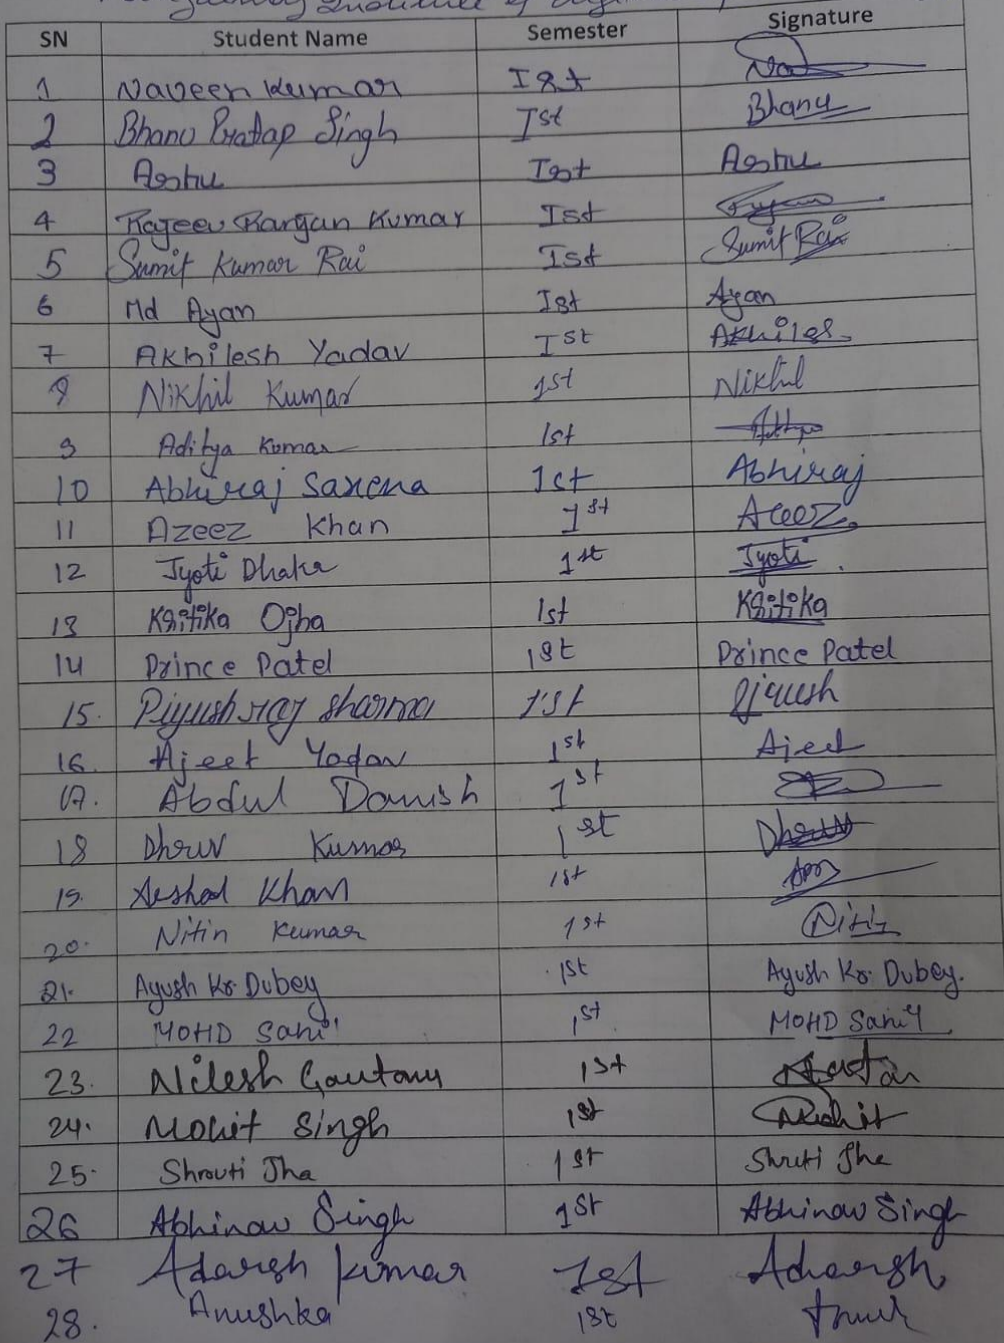 Institute of
SN Student Name Semester Signature
1 Naveen Kumar Ist
2 Bhanu Pratap Singh Ist Bhanu
3 Aashu Ist Aashu
4 Rajeev Ranjan Kumar Ist
5 Sumit Kumar Rai Ist Sumit Rai
6 Md Ayan Ist Ayan
7 Akhilesh Yadav Ist Akhiles
8 Nikhil Kumar 1st Nikhil
9 Aditya Kumar 1st
10 Abhiraj Saxena 1st Abhiraj
11 Azeez Khan 1st Azeez
12 Jyoti Dhaka 1st Jyoti
13 Kritika Ojha 1st Kritika
14 Prince Patel 1st Prince Patel
15. Piyush raj Sharma 1st Piyush
16. Ajeet Yadav 1st Ajeet
17. Abdul Danish 1st
18 Dhruv Kumar 1st Dhruv
19. Arshad Khan 1st
20. Nitin Kumar 1st Nitin
21. Ayush Kr. Dubey 1st Ayush Kr. Dubey.
22 MOHD Sanif 1st MOHD Sanif
23. Nilesh Gautam 1st
24. Mohit Singh 1st Mohit
25. Shruti Jha 1st Shruti Jha
26 Abhinav Singh 1st Abhinav Singh
27 Adarsh Kumar 1st Adharsh
28. Anushka 1st